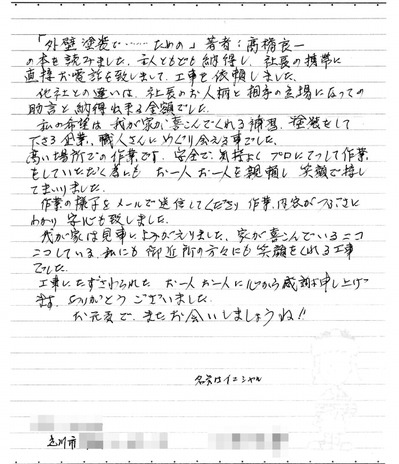 「外壁塗装で……ための」著者：髙橋良一
の本を読みました。主人ともども納得し、社長の携帯に
直接お電話を致しまして、工事を依頼しました。
他社との違いは、社長のお人柄と相手の立場になっての
助言と納得出来る金額でした。
私の希望は、我が家が喜こんでくれる補習、塗装をして
下さる企業、職人さんにめぐり会える事でした。
高い場所での作業です。安全で気持よくプロに てつして作業
をしていただく為にも お一人お一人を親頼し笑顔で接し
てまいりました。
作業の様子をメールで送信してくださり 作業内容がつぶさに
わかり 安心も致しました。
我が家は見事によみがえりました、家が喜こんでいるニコ
ニコしている、私にも御近所の方々にも笑顔をくれる工事
でした。
工事にたずさわられた お一人お一人に心から感謝申し上げ
ます。ありがとうございました。
お元気で、またお会いしましょうね!!
名字はイニシャル
立川市